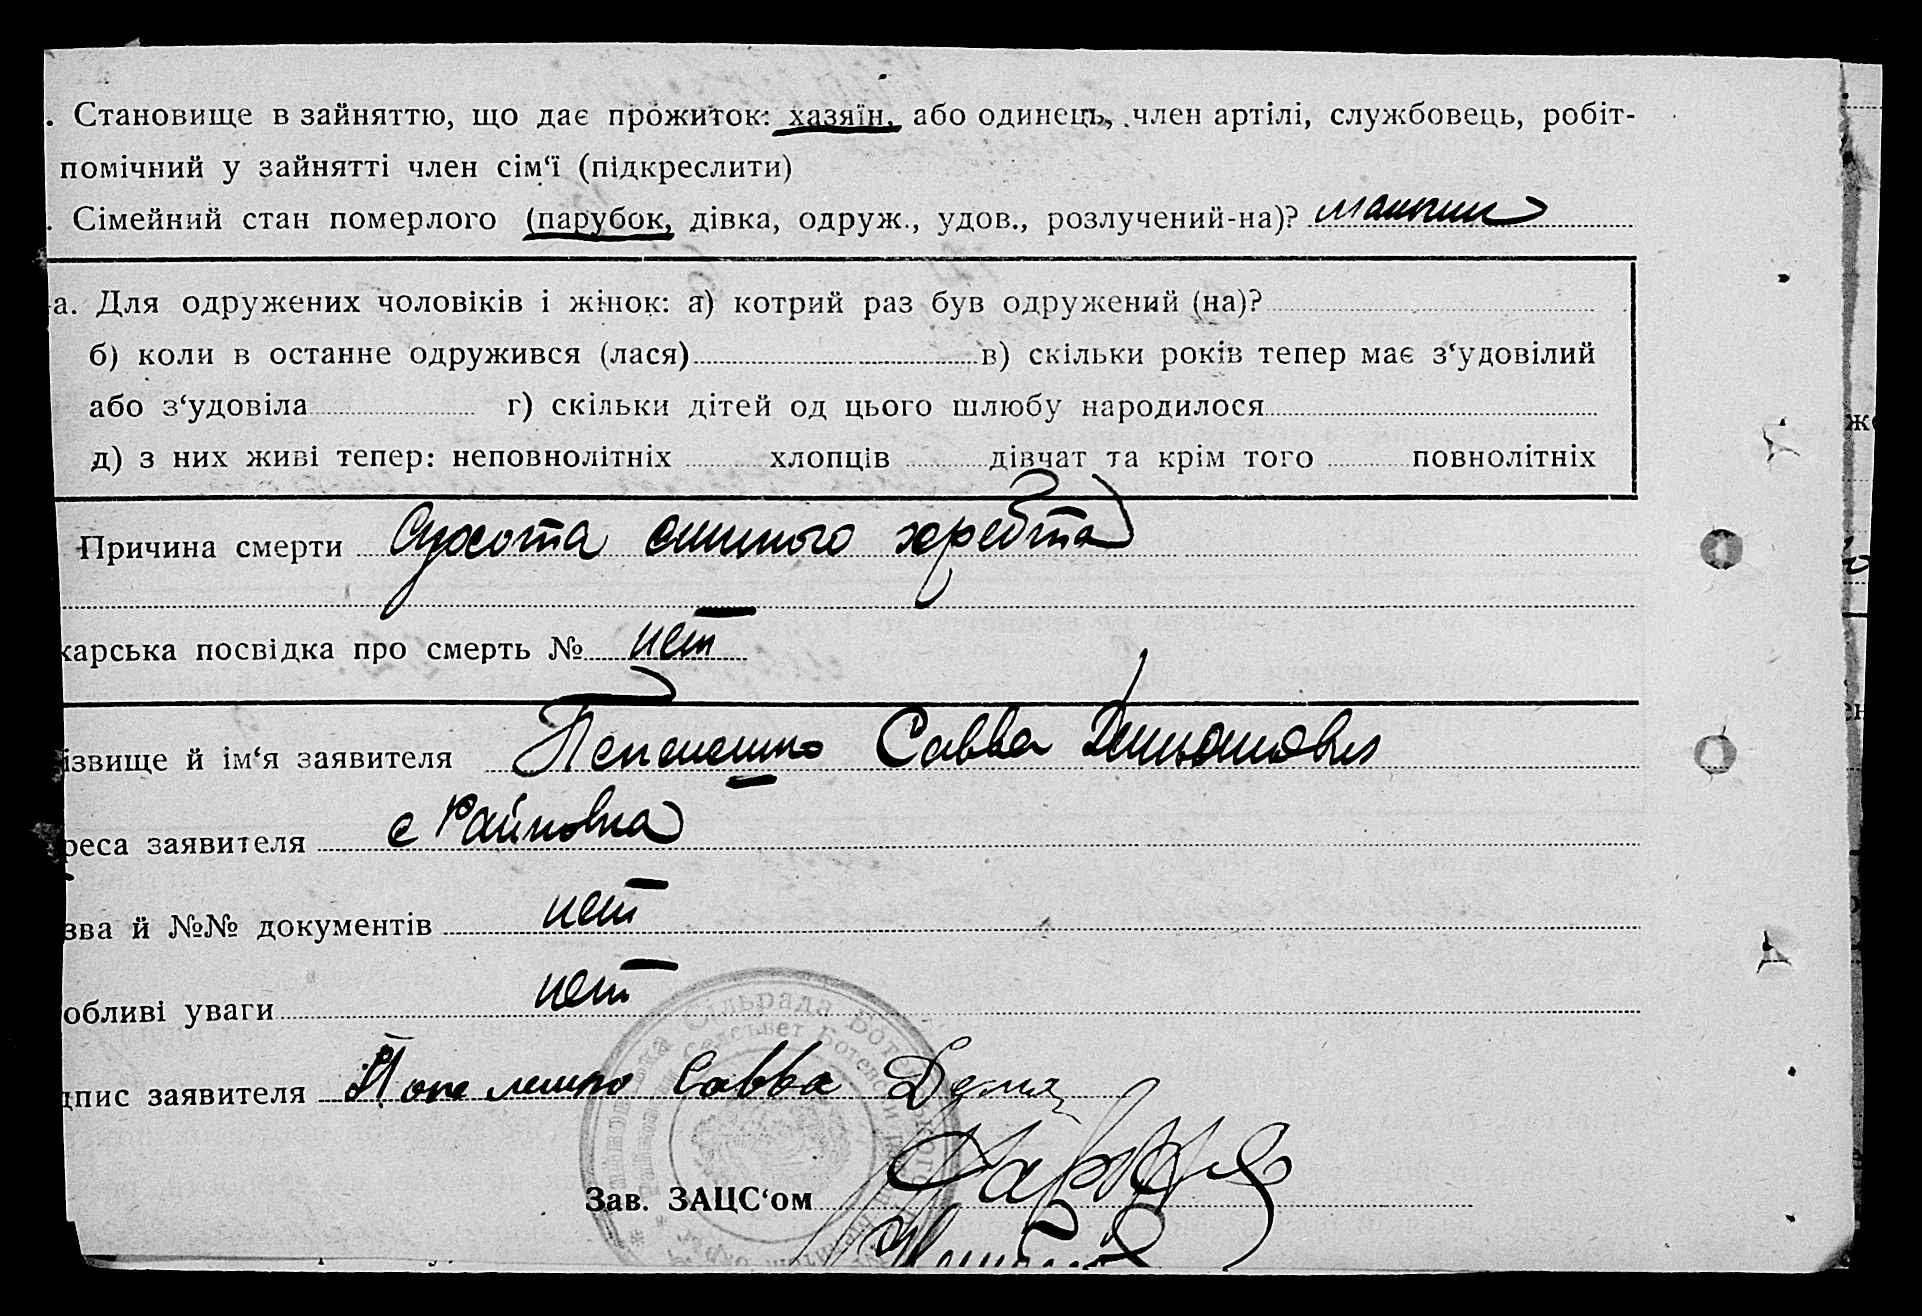 . Становище в зайняттю, що дає прожиток: хазяїн, або одинець, член артілі, службовець, робіт-
помічний у зайнятті член сім‘ї (підкреслити)
. Сімейний стан померлого (парубок, дівка, одруж., удов., розлучений-на)?
а. Для одружених чоловіків і жінок: а) котрий раз був одружений (на)?
б) коли в останнє одружився (лася) в) скільки років тепер має з‘удовілий
або з‘удовіла г) скільки дітей од цього шлюбу народилося
д) з них живі тепер: неповнолітніх хлопців дівчат та крім того повнолітніх
Причина смерти Сухота спинного хребта
карська посвідка про смерть № нет
ізвище й ім‘я заявителя Савва
реса заявителя с Райновка
зва й №№ документів нет
обливі уваги нет
дпис заявителя Савва
Сільрада
Зав. ЗАЦС‘ом